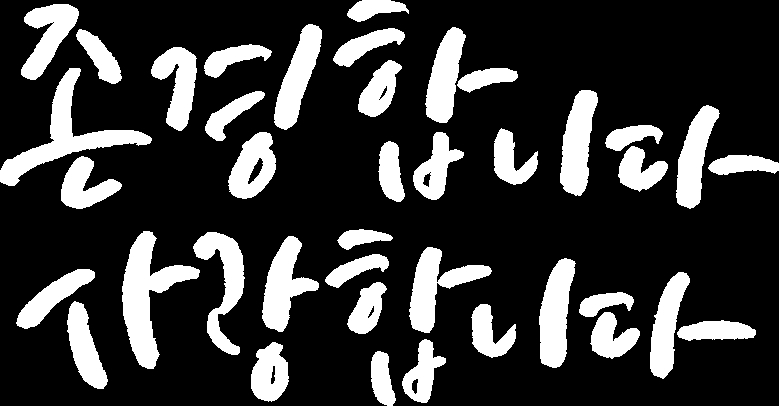 존경합니다
사랑합니다